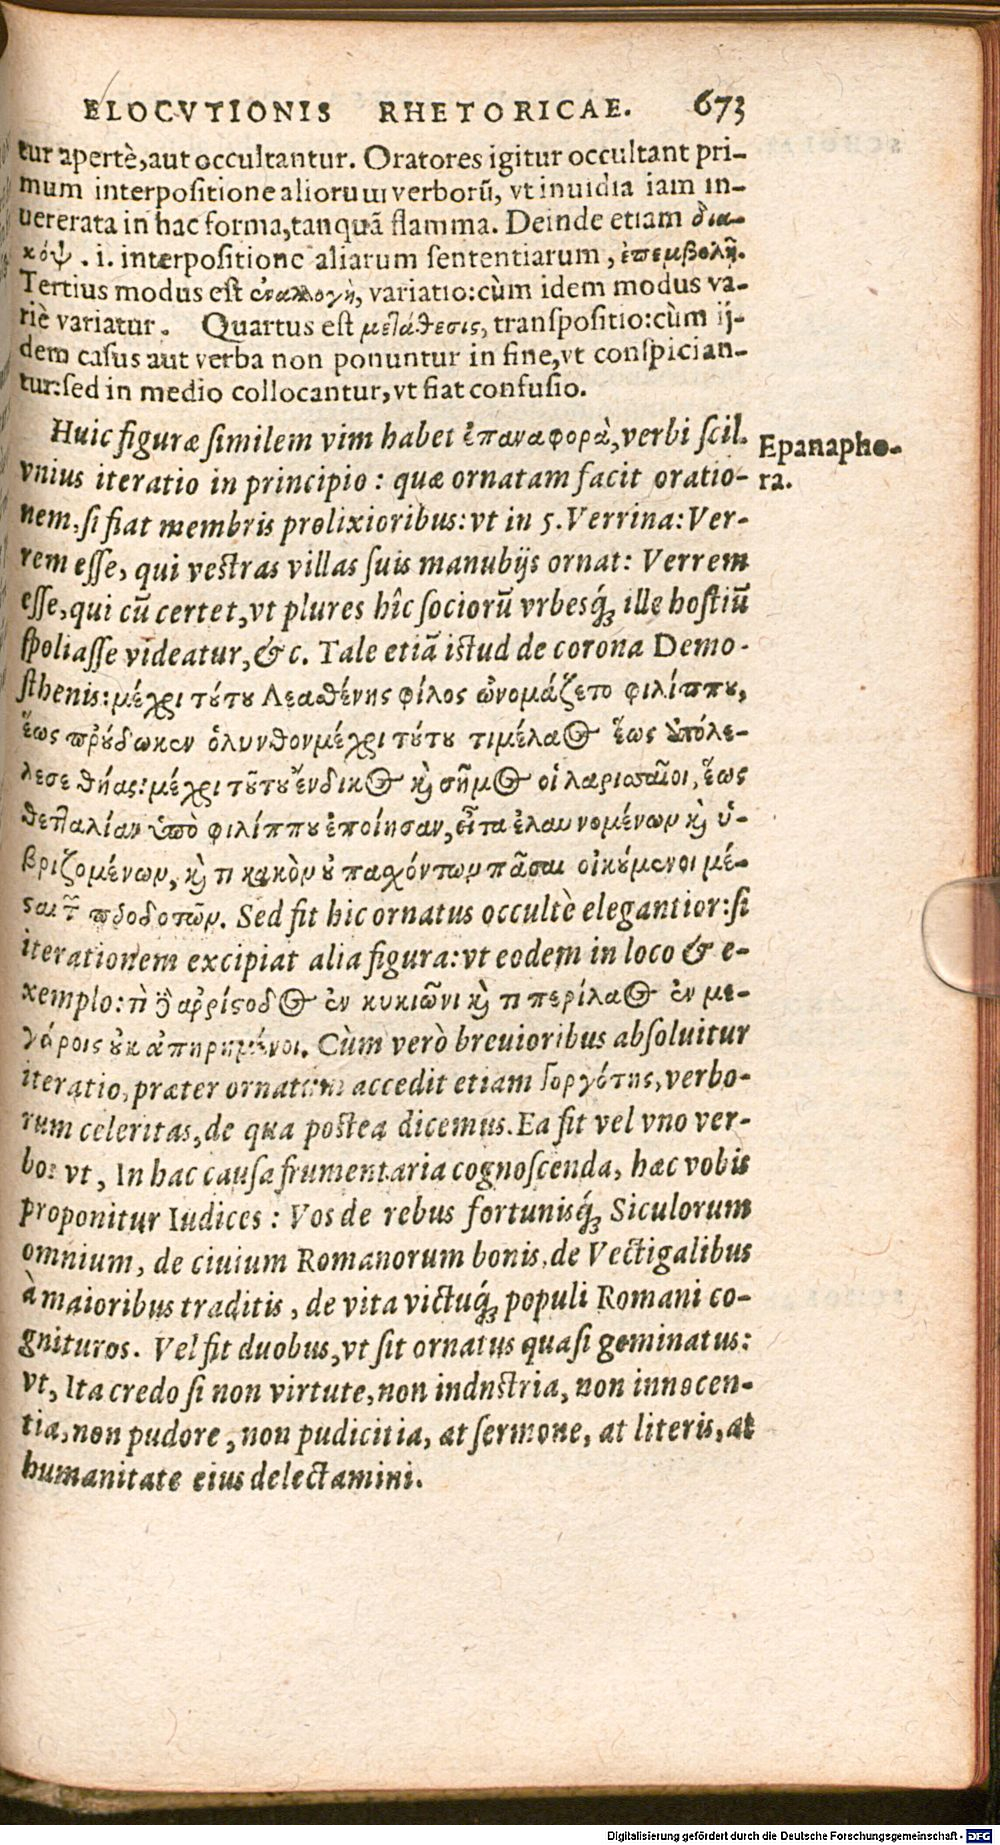 ELOCVTIONIS RHETORICAE. 673
tur apertè, aut occultantur. Oratores igitur occultant pri-
mum interpositione aliorum verborũ, vt inuidia iam in-
ueterata in hac forma, tanquã flamma. Deinde etiam δια-
κόψ. i. interpositione aliarum sententiarum, ἐπεμβολῆ.
Tertius modus est ἐναλλογὴ, variatio: cùm idem modus va-
riè variatur. Quartus est μετάθεσις, transpositio: cùm ij-
dem casus aut verba non ponuntur in fine, vt conspician-
tur: sed in medio collocantur, vt fiat confusio.
Huic figuræ similem vim habet ἐπαναφορὰ, verbi scil.
Epanapho-
ra.
vnius iteratio in principio: quæ ornatam facit oratio-
nem, si fiat membris prolixioribus: vt in 5. Verrina: Ver-
rem esse, qui vestras villas suis manubijs ornat: Verrem
esse, qui cũ certet, vt plures hîc sociorũ vrbesq́; ille hostiũ
spoliasse videatur, &c. Tale etiã istud de corona Demo-
sthenis: μέχρι τύτυ Λεαθένης φίλος ὠνομάζετο φιλίππυ,
ἕως προύδωκεν ὀλυνθον μέχρι τύτυ τιμέλαος ἕως ὑπόλε-
λεσε θήας: μέχρι τῦτυ ἔνδικος καὶ σῆμος οἱ λαρισσαῖοι, ἕως
θετταλίαν ὑπὸ φιλίππυ ἐποίησαν, εἶτα ἐλαυνομένων καὶ ὑ-
βριζομένων, καὶ τι κακὸν ὐ παχόντων πᾶσαι οἰκύμενοι μέ-
σαι τῶν προδοτῶν. Sed fit hic ornatus occultè elegantior: si
iterationem excipiat alia figura: vt eodem in loco & e-
xemplo: τὶ γὰρ ἀρρίςοδος ἐν κυκιῶνι καὶ τι περίλαος ἐν με-
γάροις ὐκ ἀπηρημένοι. Cùm verò breuioribus absoluitur
iteratio, præter ornatum accedit etiam γοργότης, verbo-
rum celeritas, de qua postea dicemus. Ea fit vel vno ver-
bo: vt, In hac causa frumentaria cognoscenda, hæc vobis
proponitur Iudices: Vos de rebus fortunisq́; Siculorum
omnium, de ciuium Romanorum bonis, de Vectigalibus
à maioribus traditis, de vita victuq́; populi Romani co-
gnituros. Vel fit duobus, vt sit ornatus quasi geminatus:
vt, Ita credo si non virtute, non indnstria, non innocen-
tia, non pudore, non pudicitia, at sermone, at literis, at
humanitate eius delectamini.
Digitalisierung gefördert durch die Deutsche Forschungsgemeinschaft - DFG